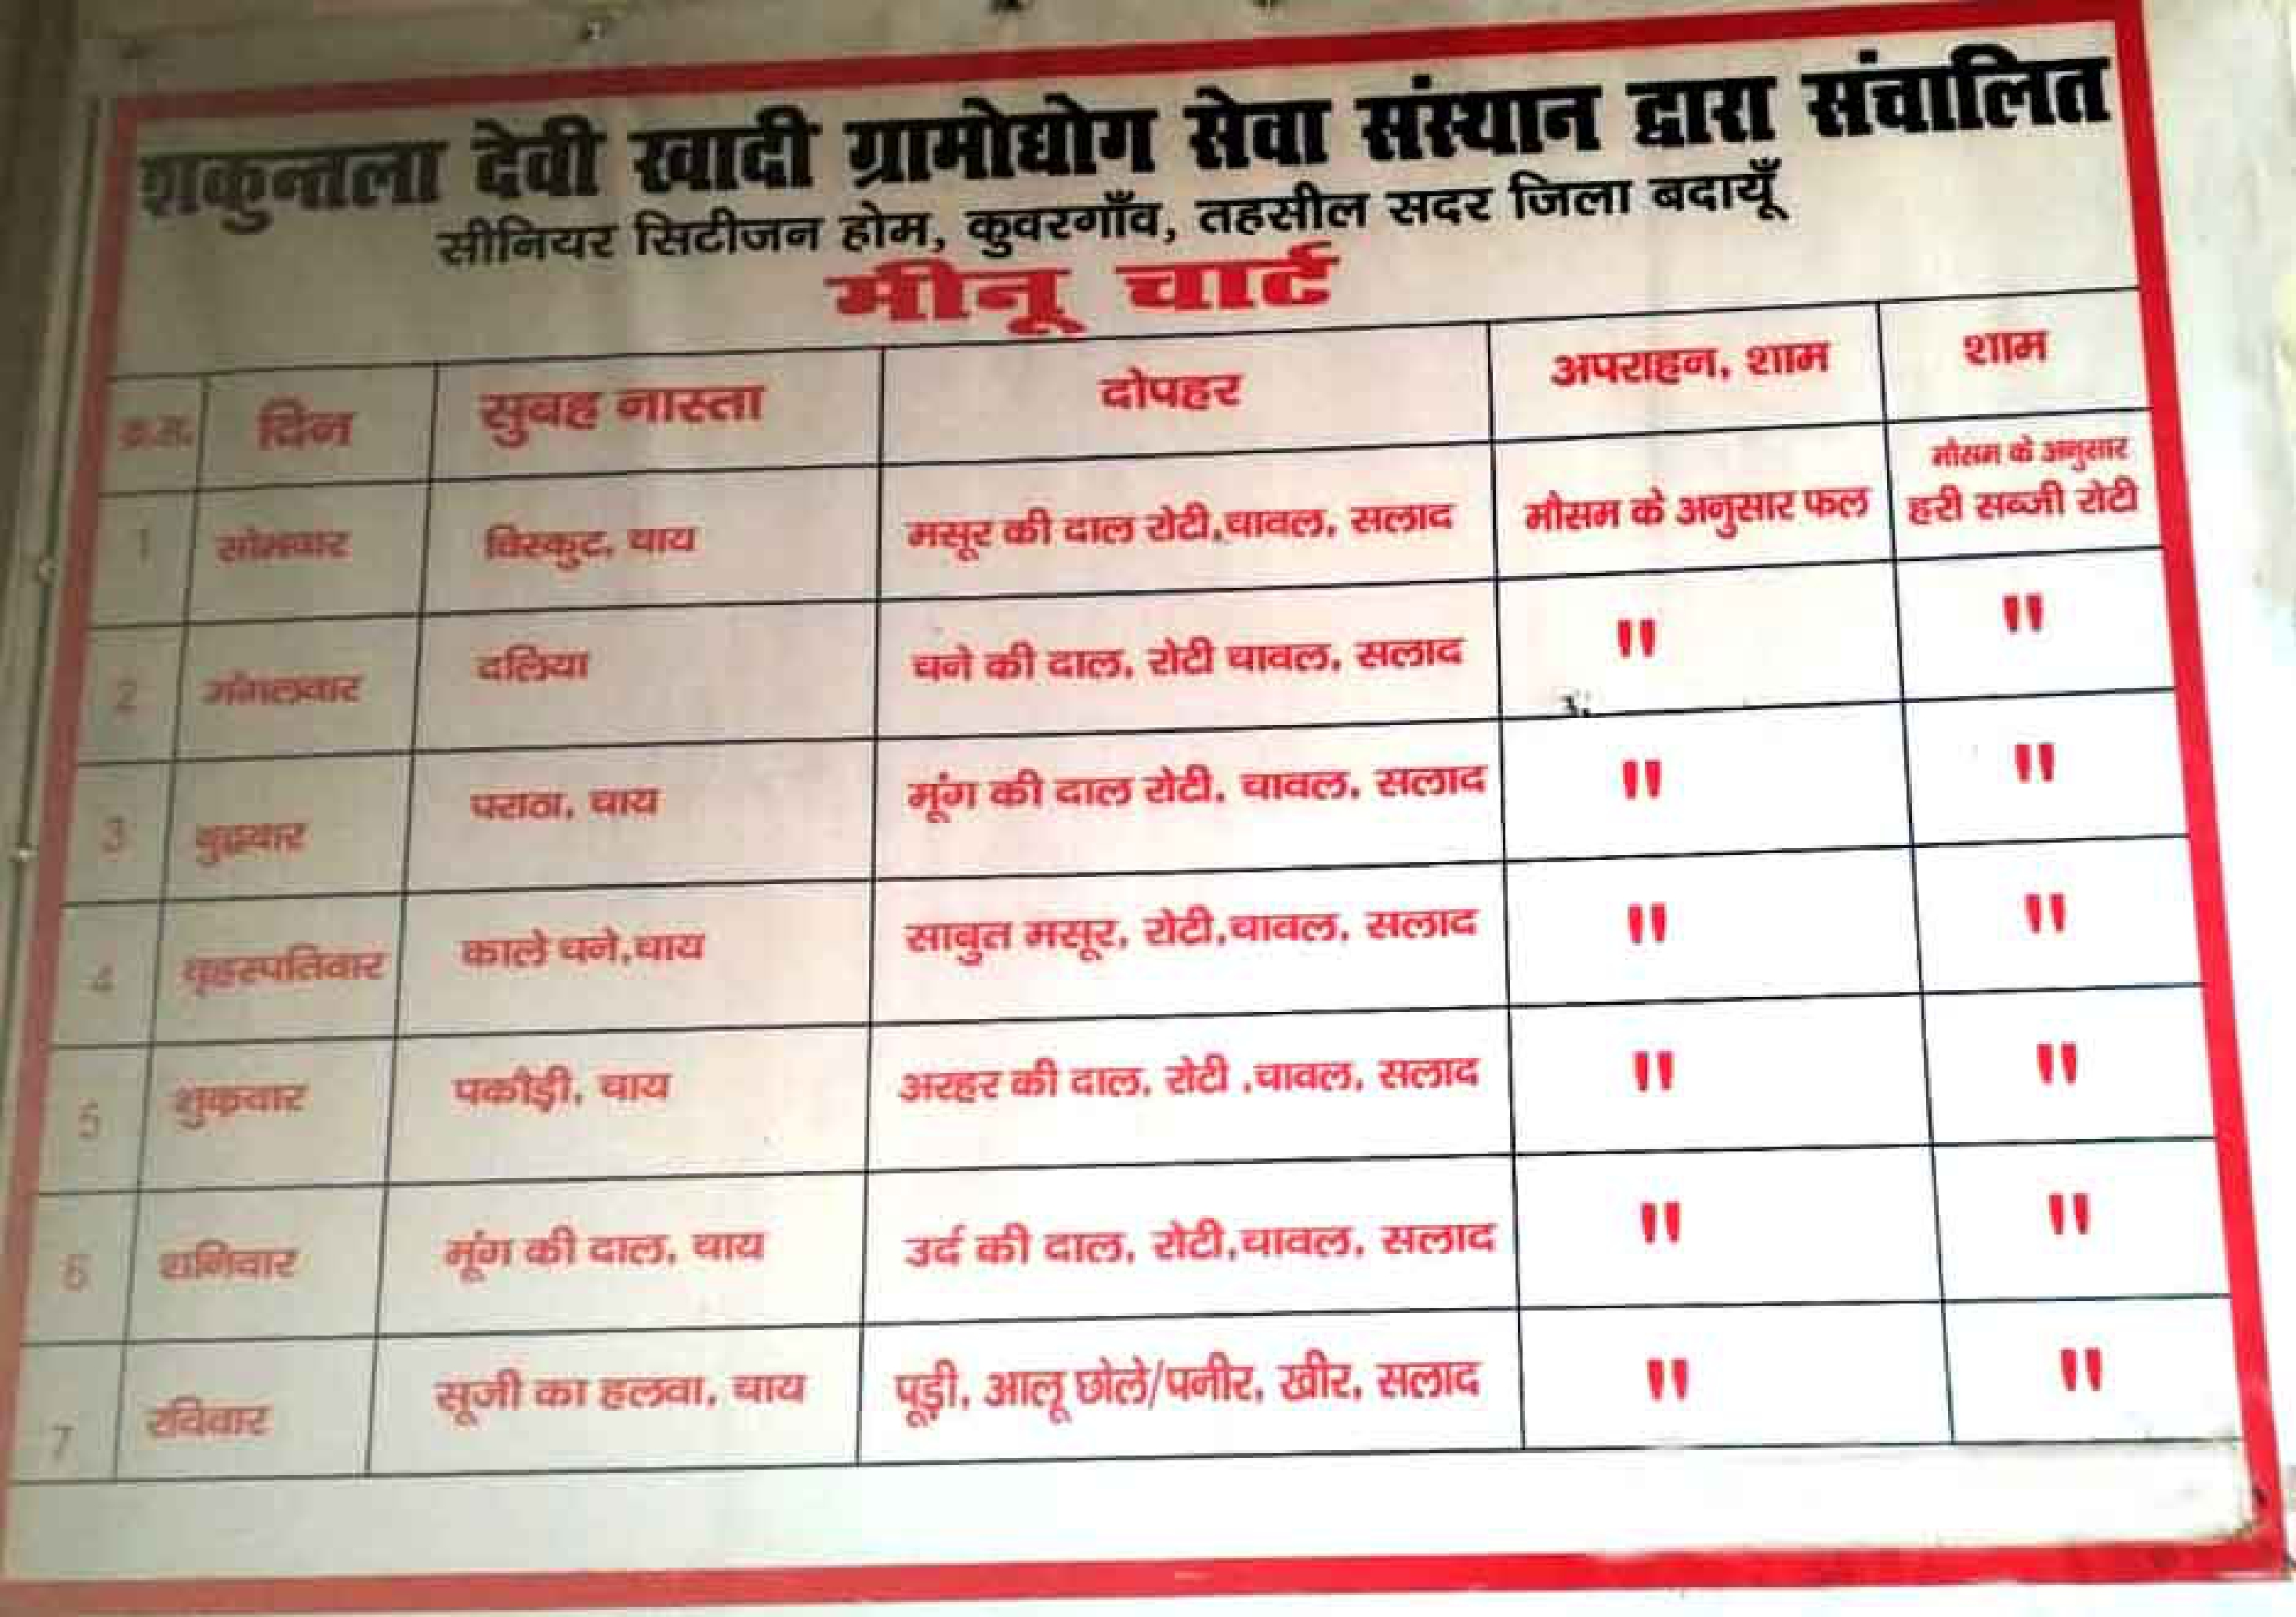 शकुन्तला देवी खादी ग्रामोद्योग सेवा संस्थान द्वारा संचालित
सीनियर सिटीजन होम, कुवरगाँव, तहसील सदर जिला बदायूँ
मीनू चार्ट
क्र.स. दिन सुबह नास्ता दोपहर अपराहन, शाम शाम
1 सोमवार विस्कुट, चाय मसूर की दाल रोटी,चावल, सलाद मौसम के अनुसार फल मौसम के अनुसार हरी सब्जी रोटी
2 मंगलवार दलिया चने की दाल, रोटी चावल, सलाद " "
3 बुद्धवार पराठा, चाय मूंग की दाल रोटी, चावल, सलाद " "
4 वृहस्पतिवार काले चने,चाय साबुत मसूर, रोटी,चावल, सलाद " "
5 शुक्रवार पकौड़ी, चाय अरहर की दाल, रोटी ,चावल, सलाद " "
6 शनिवार मूंग की दाल, चाय उर्द की दाल, रोटी,चावल, सलाद " "
7 रविवार सूजी का हलवा, चाय पूड़ी, आलू छोले/पनीर, खीर, सलाद " "